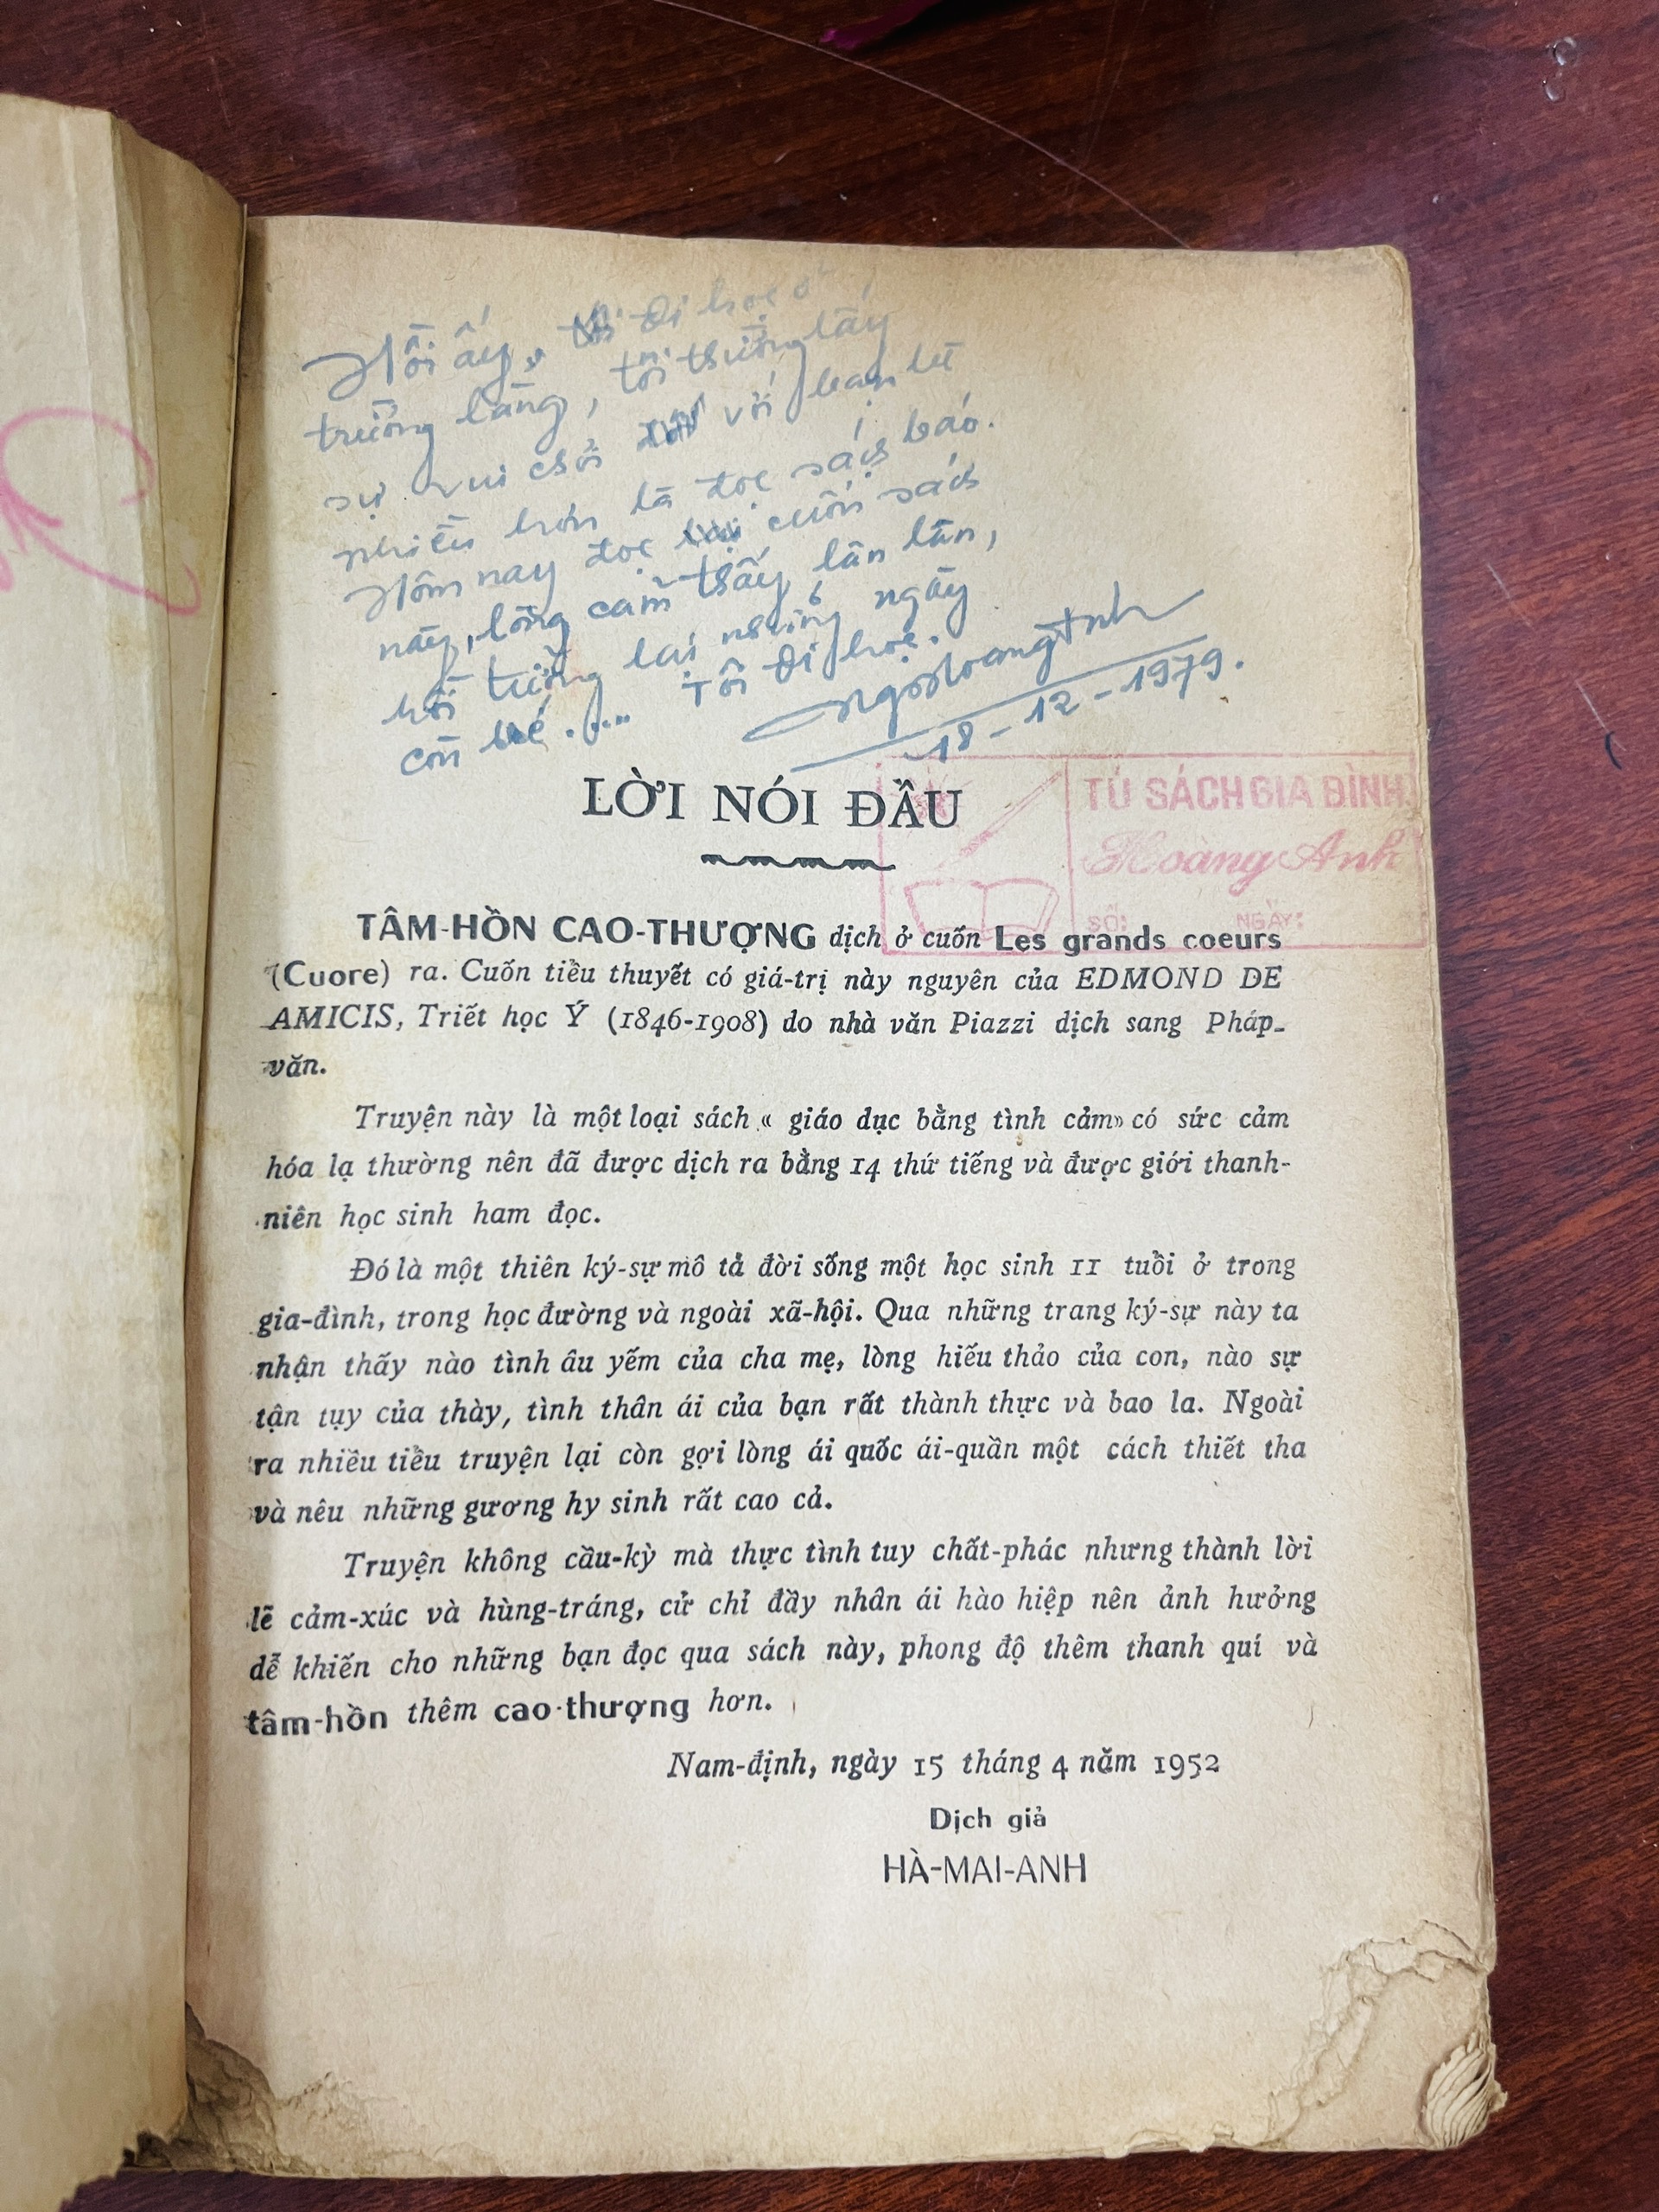 Hồi ấy, tôi đi học ở
trường làng, tôi thường lấy
sự vui chơi với bạn bè
nhiều hơn là đọc sách báo.
Hôm nay đọc lại cuốn sách
này, lòng cảm thấy lân lân,
hồi tưởng lại những ngày
còn bé..... Tôi đi học.
18-12-1979.
LỜI NÓI ĐẦU
TỦ SÁCH GIA ĐÌNH
Hoàng Anh
SỐ: NGÀY:
TÂM-HỒN CAO-THƯỢNG dịch ở cuốn Les grands coeurs
(Cuore) ra. Cuốn tiểu thuyết có giá-trị này nguyên của EDMOND DE
AMICIS, Triết học Ý (1846-1908) do nhà văn Piazzi dịch sang Pháp-
văn.
Truyện này là một loại sách « giáo dục bằng tình cảm» có sức cảm
hóa lạ thường nên đã được dịch ra bằng 14 thứ tiếng và được giới thanh-
niên học sinh ham đọc.
Đó là một thiên ký-sự mô tả đời sống một học sinh 11 tuổi ở trong
gia-đình, trong học đường và ngoài xã-hội. Qua những trang ký-sự này ta
nhận thấy nào tình âu yếm của cha mẹ, lòng hiếu thảo của con, nào sự
tận tụy của thày, tình thân ái của bạn rất thành thực và bao la. Ngoài
ra nhiều tiểu truyện lại còn gợi lòng ái quốc ái-quần một cách thiết tha
và nêu những gương hy sinh rất cao cả.
Truyện không cầu-kỳ mà thực tình tuy chất-phác nhưng thành lời
lẽ cảm-xúc và hùng-tráng, cử chỉ đầy nhân ái hào hiệp nên ảnh hưởng
dễ khiến cho những bạn đọc qua sách này, phong độ thêm thanh quí và
tâm-hồn thêm cao-thượng hơn.
Nam-định, ngày 15 tháng 4 năm 1952
Dịch giả
HÀ-MAI-ANH